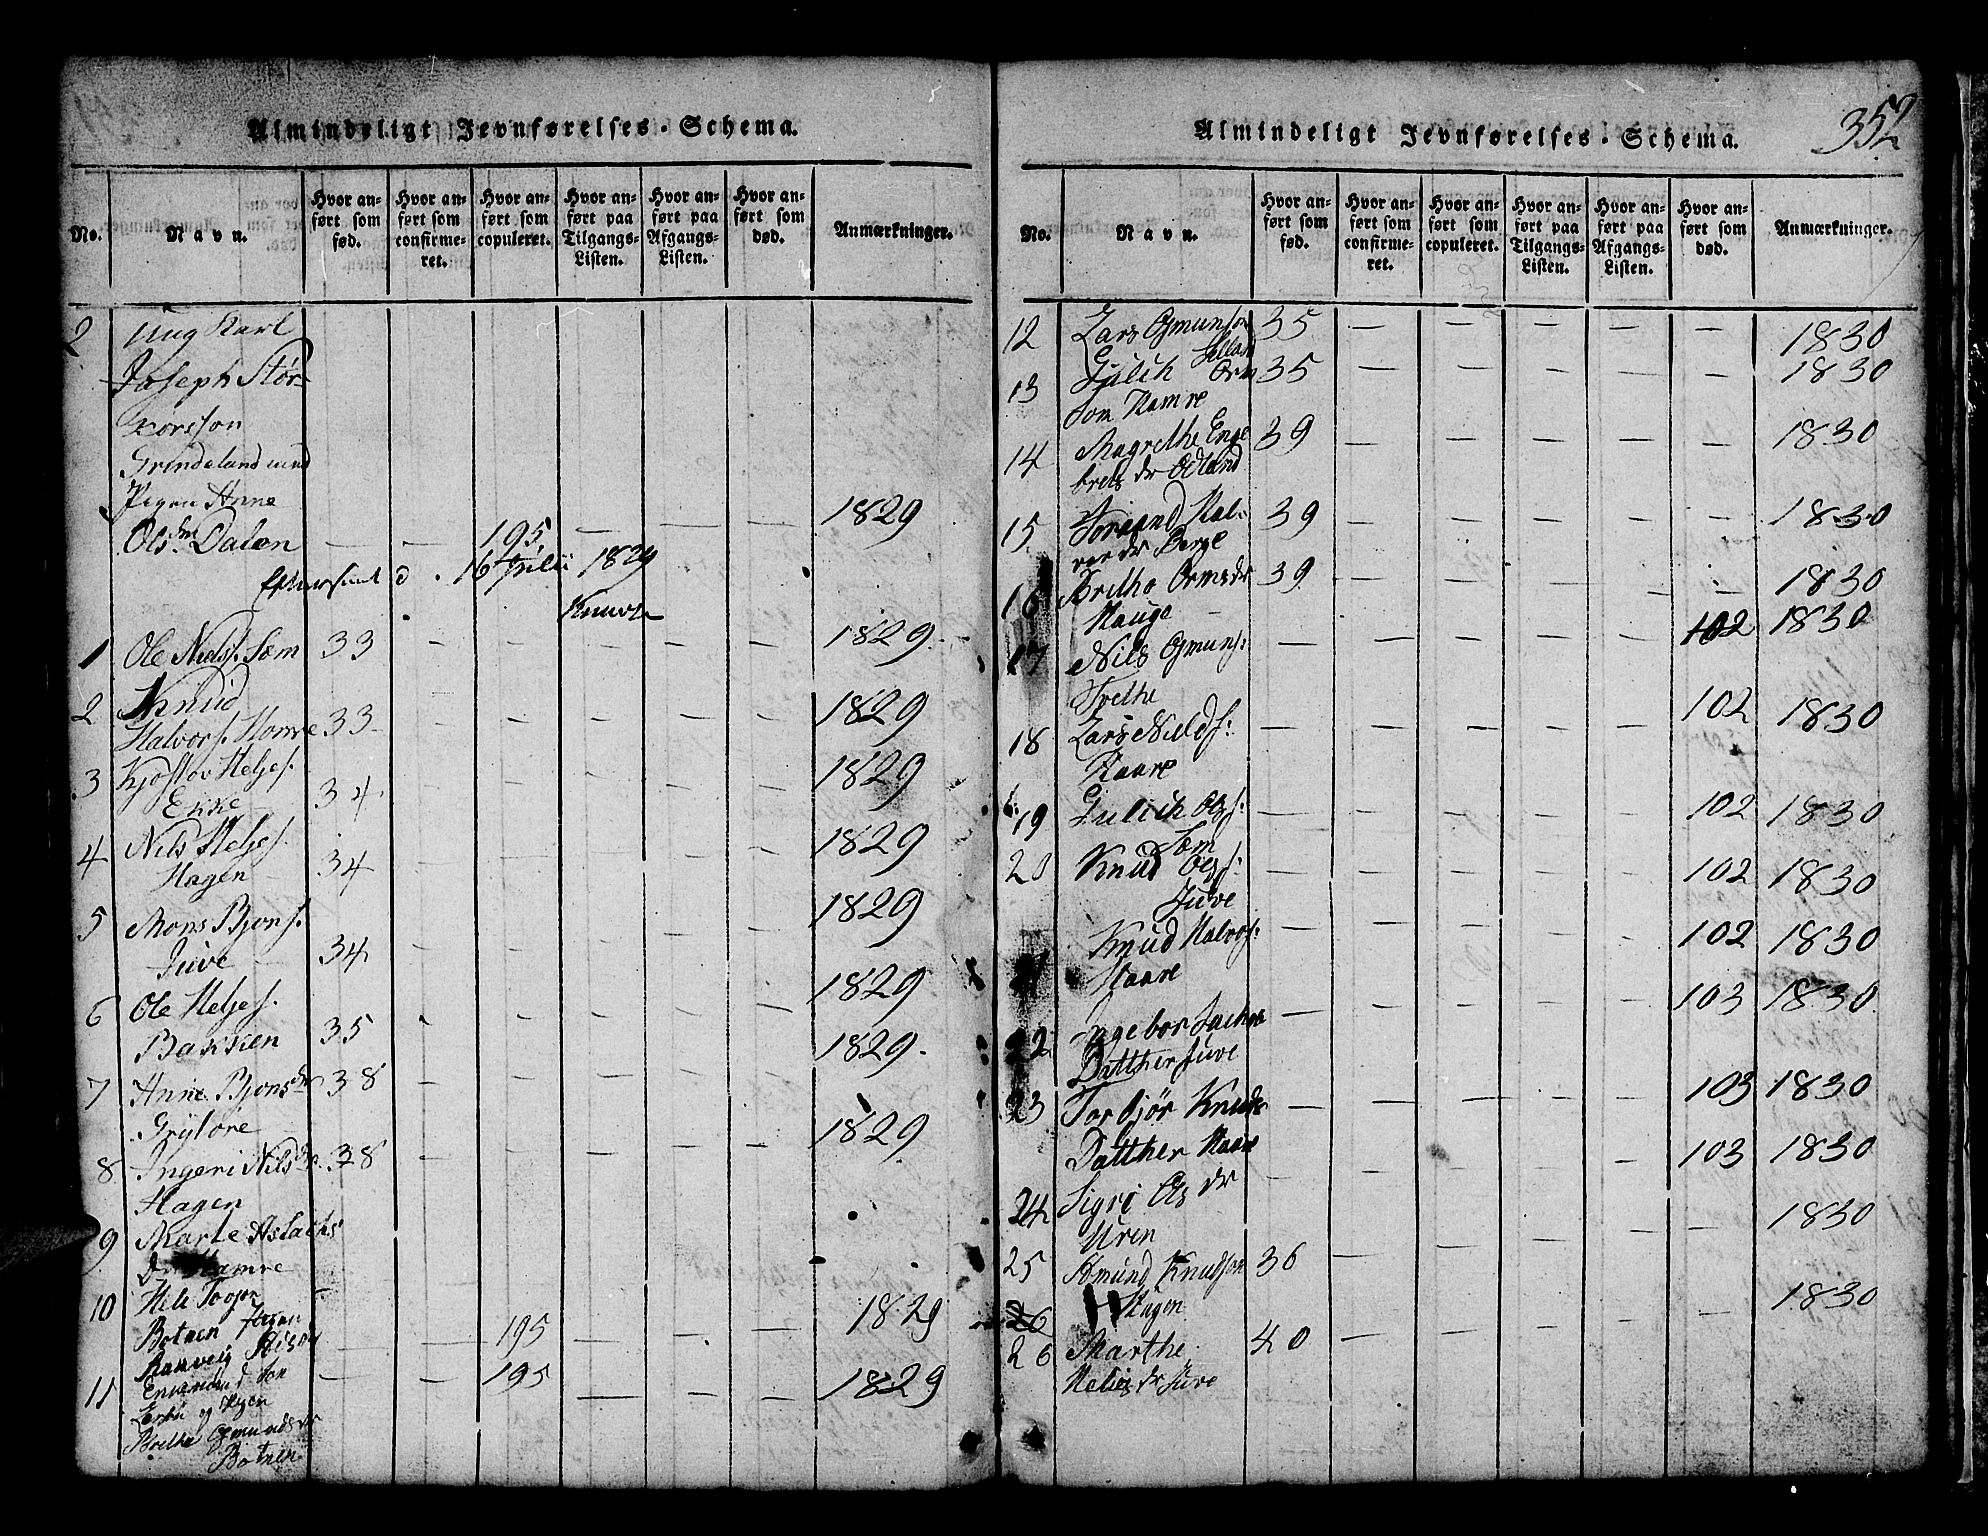 Almindeligt Jevnførelses-Schema.
No.
Navn.
Hvor anført som fød.
Hvor anført som confirmeret.
Hvor anført som copuleret.
Hvor anført paa Tilgangs-Listen.
Hvor anført paa Afgangs-Listen.
Hvor anført som død.
Anmærkninger.
2 Ung Karl
Joseph Stør-
korsson
Grindeland med
Pigen Anne
Ols Dr Dalen — — 195 — 1829
16 Julii 1829
1 Ole Nielss. Sæm 33 — — — — — 1829
2 Knud
Halvors. Hamre 33 — — — — — 1829
3 Kjøstov Heljes.
Ekke 34 — — — — — 1829
4 Nils Heljes.
Hagen 34 — — — — — 1829
5 Mons Bjøns.
Juve 34 — — — — — 1829
6 Ole Heljes.
Bakken 35 — — — — — 1829
7 Anne Bjønsdr 38 — — — — — 1829.
Grytøre
8 Ingeri Nilsdr. 38 — — — — — 1829
Hagen
9 Marte Aslachs
Dr Hamre
10
Botnen — — 195 — — — 1829
11 — — 195 — — — 1829
og Pigen
Brethe Ogmundsdr
Botnen
Almindeligt Jevnførelses-Schema.
352
No.
Navn.
Hvor anført som fød.
Hvor anført som confirmeret.
Hvor anført som copuleret.
Hvor anført paa Tilgangs-Listen.
Hvor anført paa Afgangs-Listen.
Hvor anført som død.
Anmærkninger.
12 Lars Ogmunson 35 — — — — — 1830
13 Gulich Orm 35 — — — — — 1830
Som Hamre
14 Magrethe Enge 39 — — — — — 1830
brets dr Odland
15 Toregnd Hal- 39 — — — — — 1830
vordr Berge
16 Brithe Ormsdr 39 — — — — — 1830
Hauge
17 Nils Ogmuns. — — — — — 102 1830
Tvethe
18 Lars Nields. — — — — — 102 1830
Haare
19 Gulich Ols. — — — — — 102 1830
Sæm
20 Knud Ols. — — — — — 102 1830
Juve
21 Knud Halvors. — — — — — 102 1830
Haare
22 Ingebor — — — — — 103 1830
Datther Juve
23 Torbjør Knuds — — — — — 103 1830
Datther Haare
24 Sigri Ols dr — — — — — 103 1830
Uren
25 Amund Knudson 36 — — — — — 1830
Hagen
26
26 Marthe 40 — — — — — 1830
dr Juve